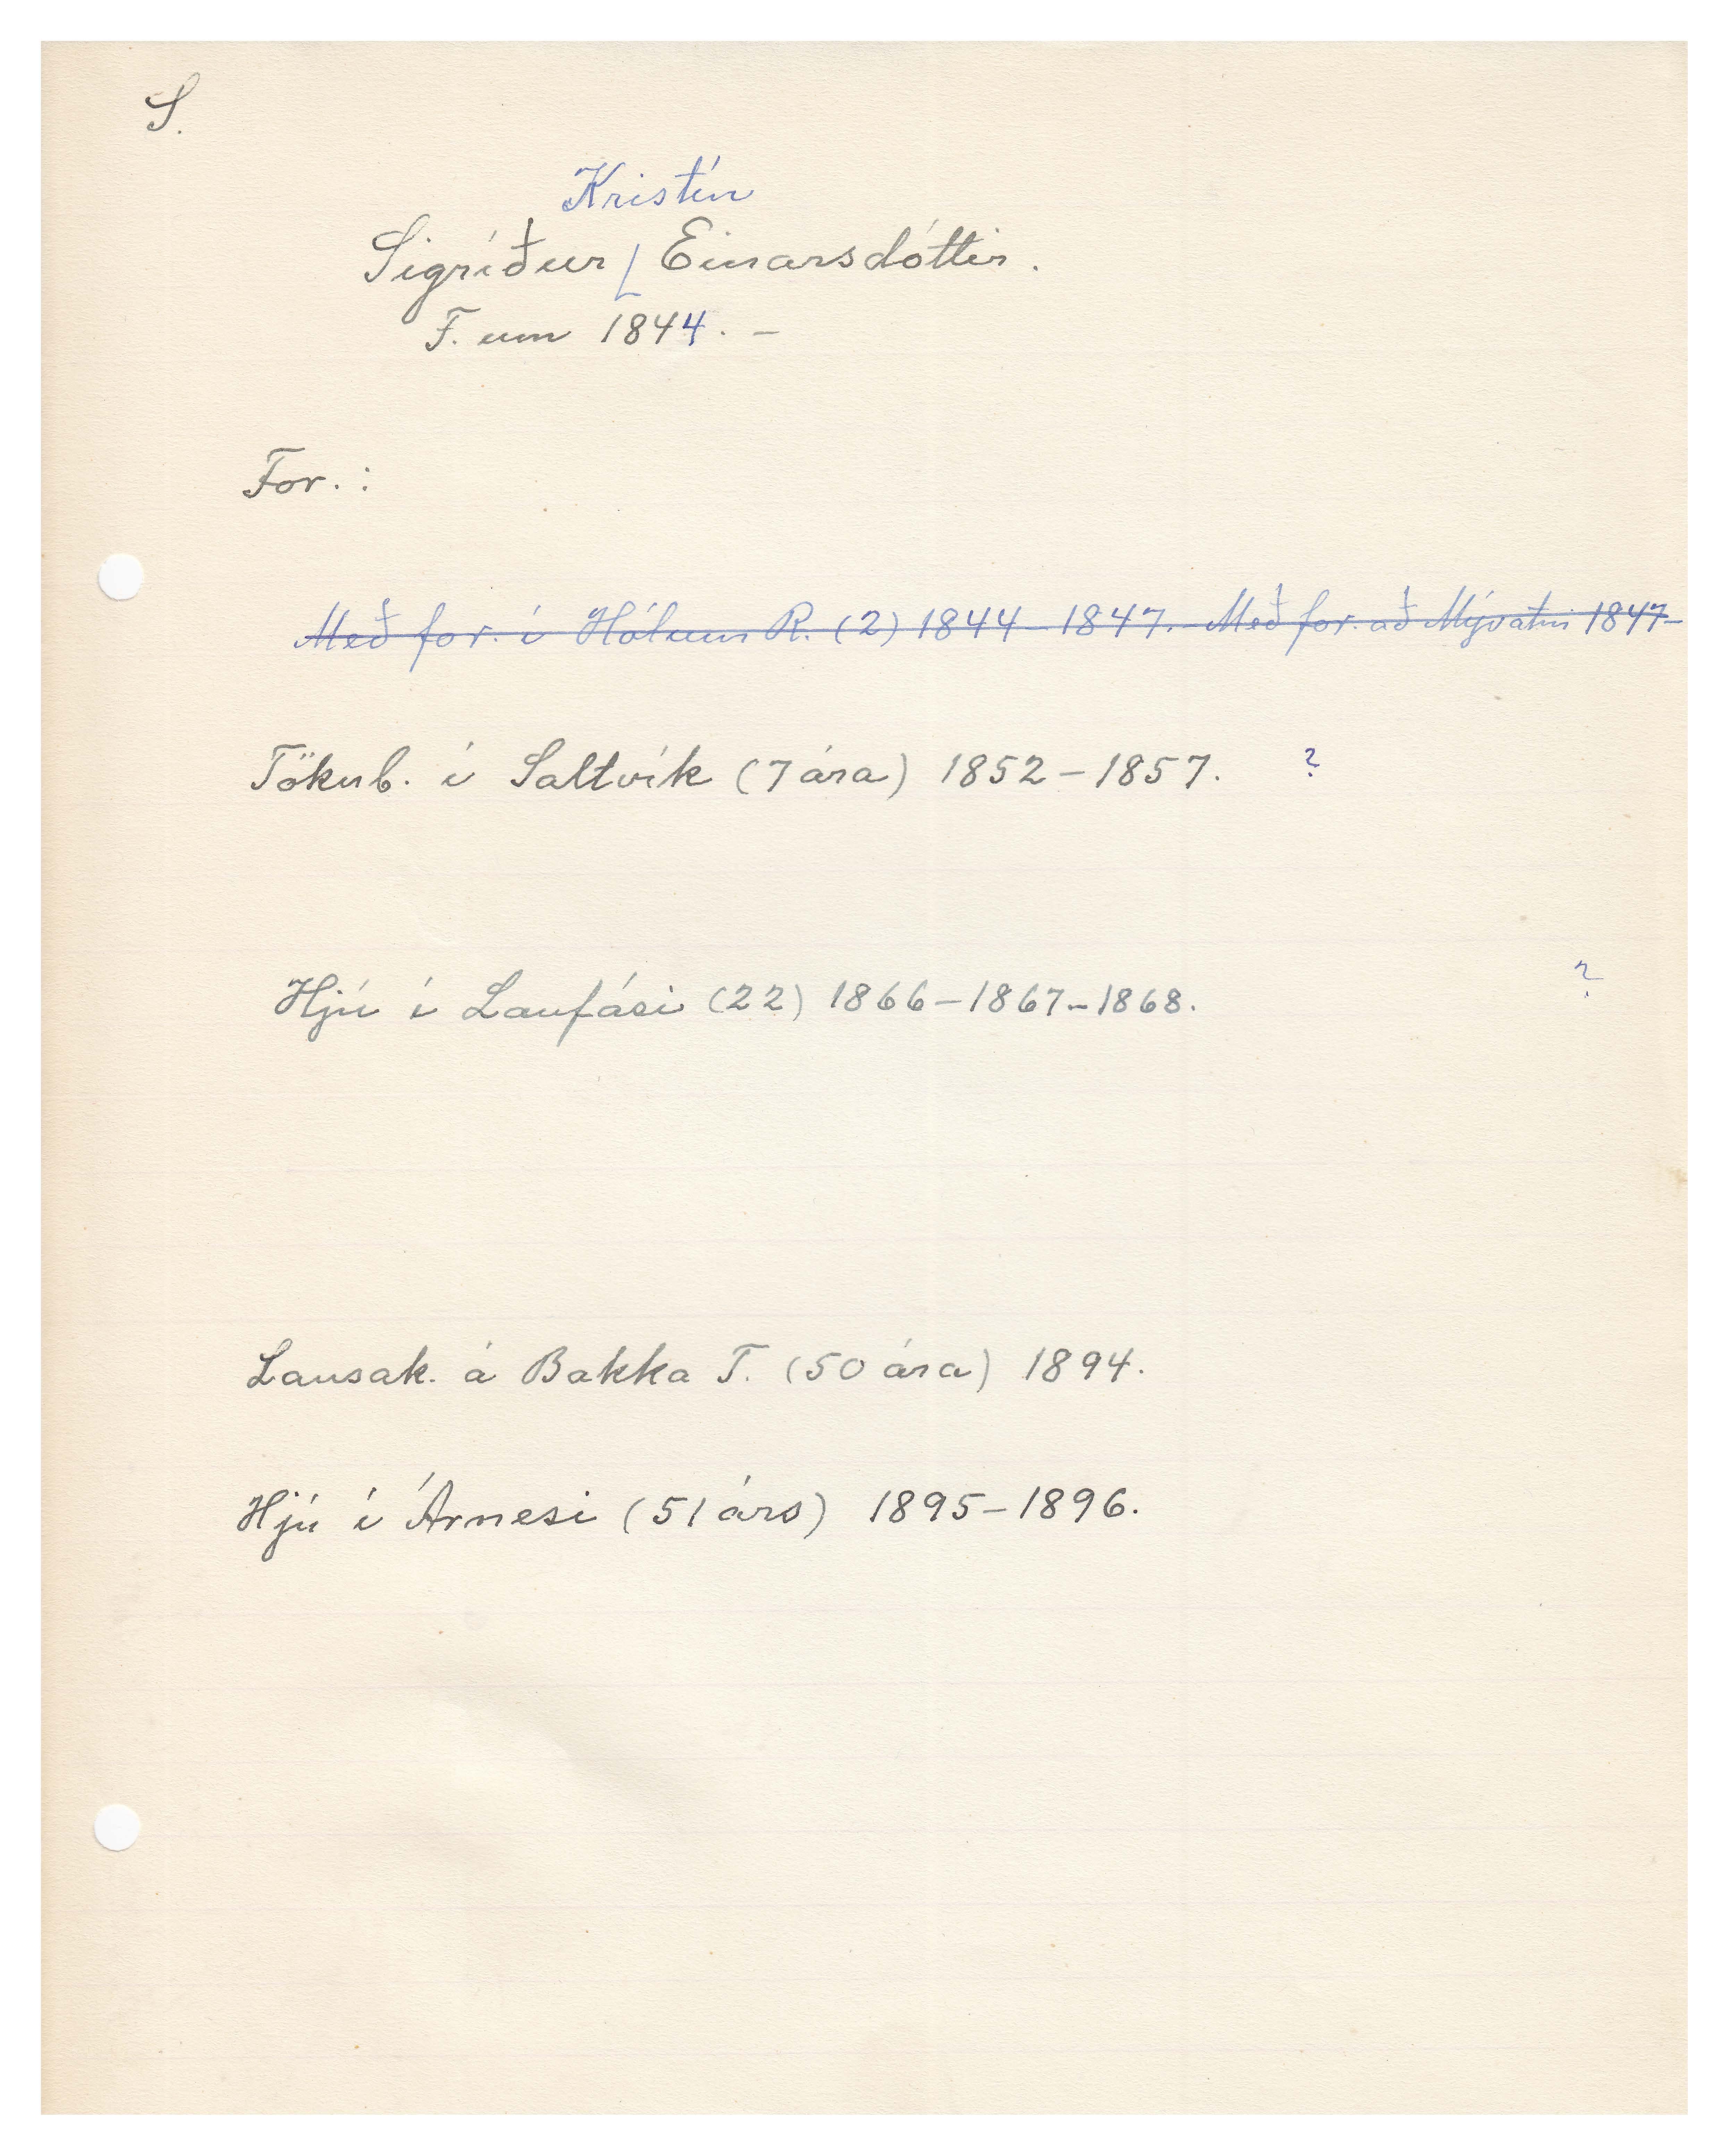 S.
Kristín
Sigríður Einarsdóttir.
F. um 1844. –
For. :
Með for. í Hólum R. (2) 1844–1847. Með for. að Mývatni 1847–
Tökub. í Saltvík (7 ára) 1852–1857. ?
?
Hjú í Laufási (22) 1866–1867–1868.
Lausak. á Bakka T. (50 ára) 1894.
Hjú í Árnesi (51 árs) 1895–1896.